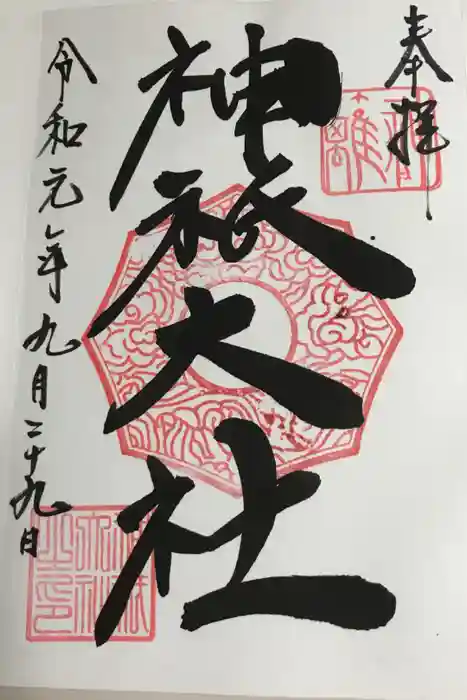 奉拝
神祇大社
令和元年九月二十九日